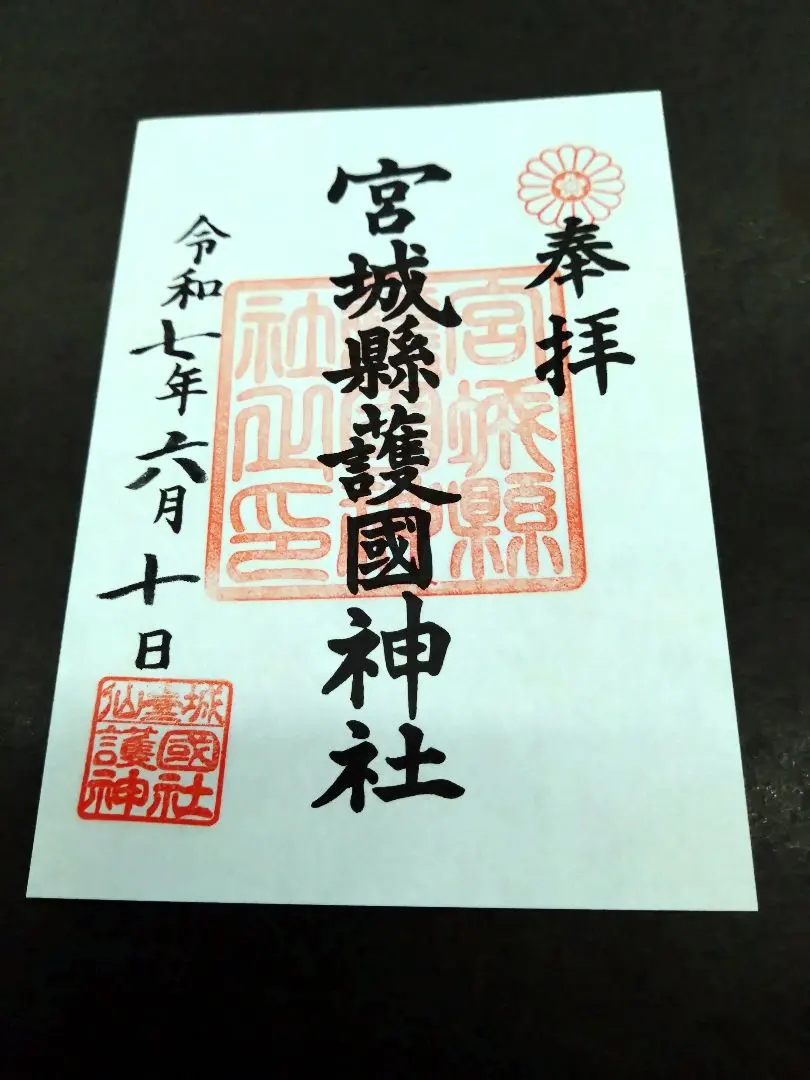 奉拝
宮城縣護國神社
令和七年六月十日
宮城縣
社之印
仙臺城
護國
神社